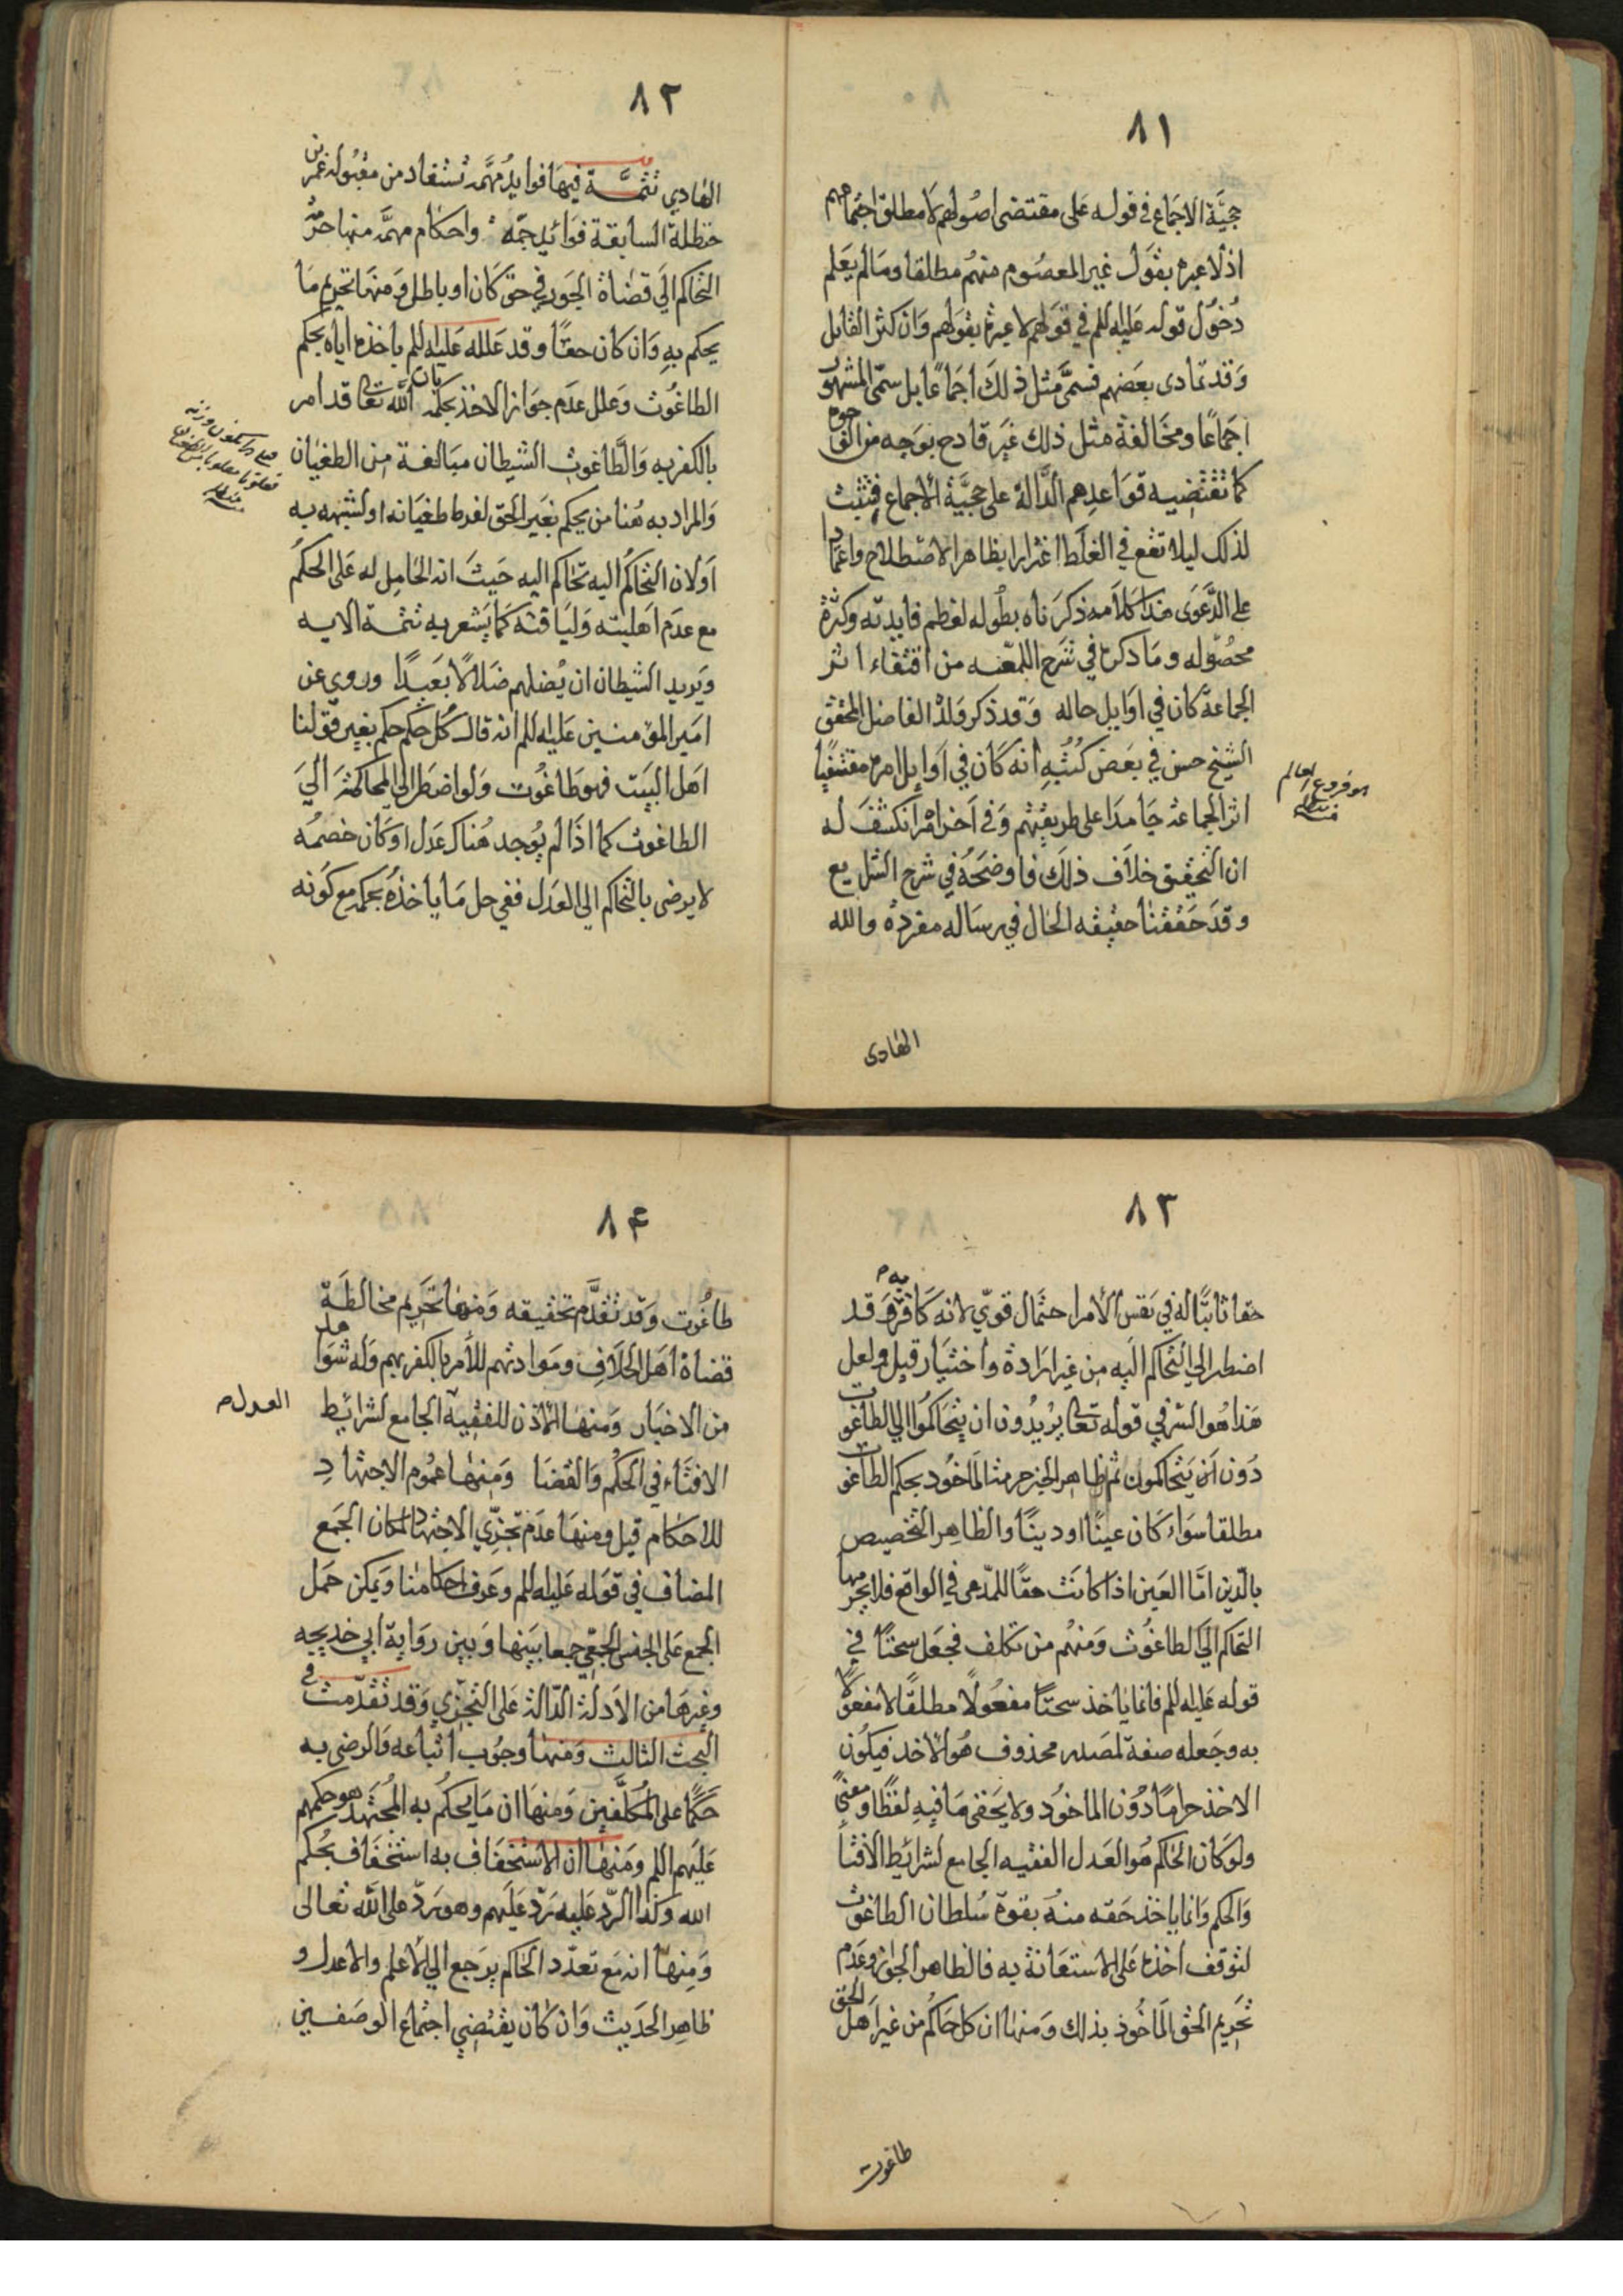 ٨١
حجيّة الاجماع في قوله على مقتضى اصولهم لا مطلق اجتماعهم
اذ لا عبرة بقول غير المعصوم منهم مطلقا وما لم يعلم
دخول قوله عليه السلم في قولهم لا عبرة بقولهم وان كثر القايل
وقد تمادى بعضهم فسمى مثل ذلك اجماعا بل سمّى المشهور
اجماعًا ومخالفة مثل ذلك غير قادح بوجه من الوجوه
كما تقتضيه قواعدهم الدالة على حجيّة الاجماع فتثبت
لذلك ليلا تقع في الغلط اغترارا بظاهر الاصطلاح واعتمادا
على الدّعوى هذا كلامه ذكرناه بطوله لعظم فايدته وكثرة
محصوله وما ذكره في شرح اللمعه من اقتفاء اثر
الجماعة كان في اوايل حاله وقد ذكر ولده الفاضل المحقق
الشيخ حسن في بعض كتبه انه كان في اوايل امره مقتفيًا
اثر الجماعة جامدا على طريقتهم وفي آخر امره انكشف له
ان التحقيق خلاف ذلك فاوضحه في شرح الشرايع
وقد حققنا حقيقه الحال في رساله مفردة والله
هو فروع المعالم
منه
الهادى
٨٢
الهادي تتمّة فيها فوايد مهمّة تستفاد من مقبولة عمر بن
حنظلة السابقة فوائد جمّه واحكام مهمّه منها حرمة
التحاكم الى قضاة الجور في حق كان او باطل ومنها تحريم ما
يحكم به وان كان حقًا وقد علله عليه السلم باخذه اياه بحكم
الطاغوت وعلل عدم جواز الاخذ بحكمه بان الله تعالى قد امر
بالكفر به والطاغوت الشيطان مبالغة من الطغيان
والمراد به هنا من يحكم بغير الحق لفرط طغيانه او لشبهه به
او لان التحاكم اليه تحاكم اليه حيث انه الحامل له على الحكم
مع عدم اهليته ولياقته كما يشعر به تتمة الايه
ويريد الشيطان ان يضلهم ضلالًا بعيدًا وروي عن
امير المؤمنين عليه السلم انه قال كل حكم حكم بغير قولنا
اهل البيت فهو طاغوت ولو اضطر الى المحاكمة الى
الطاغوت كما اذا لم يوجد هناك عدل او كان خصمه
لا يرضى بالتحاكم الى العدل ففي حل ما ياخذه بحكمه مع كونه
٨٣
حقا ثابتًا له في نفس الأمر احتمال قويّ لانه كافر به وقد
اضطر الى التحاكم اليه من غير ارادة واختيار قيل ولعل
هذا هو السّر في قوله تعالى يريدون ان يتحاكموا الى الطاغوت
دون ان يتحاكمون ثم ظاهر الخبر حرمة المأخوذ بحكم الطاغوت
مطلقا سواء كان عينًا او دينًا والظاهر التخصيص
بالدّين امّا العين اذا كانت حقًا للمدّعى في الواقع فلا يحرمها
التحاكم الى الطاغوت ومنهم من تكلف فجعل سحتًا في
قوله عليه السلم فانما ياخذ سحتًا مفعولًا مطلقًا لا مفعولًا
به وجعله صفة لمصدر محذوف هو الاخذ فيكون
الاخذ حرامًا دون الماخوذ ولا يخفى ما فيه لفظًا ومعنى
ولو كان الحاكم هو العدل الفقيه الجامع لشرائط الافتا
والحكم وانما ياخذ حقه منه بقوة سلطان الطاغوت
لتوقف اخذه على الاستعانة به فالظاهر الجواز وعدم
تحريم الحق المأخوذ بذلك ومنها ان كل حاكم من غير اهل الحق
طاغوت
٨۴
طاغوت وقد تقدّم تحقيقه ومنها تحريم مخالطة
قضاة اهل الخلاف وموادتهم للأمر بالكفر بهم وله شواهد
من الاخبار ومنها الاذن للفقيه الجامع لشرائيط
العدل
الافتاء في الحكم والقضا ومنها عموم الاجتهاد
للاحكام قيل ومنها عدم تجزّي الاجتهاد لمكان الجمع
المضاف في قوله عليه السلم وعرف احكامنا ويمكن حمل
الجمع على الجنس الجمعي جمعا بينها وبين رواية ابي خديجه
وغيرها من الادلة الدالة على التجزي وقد تقدّمت في
البحث الثالث ومنها وجوب اتباعه والرضى به
حكمًا على المكلفين ومنها ان ما يحكم به المجتهد هو حكمهم
عليهم السلم ومنها ان الاستخفاف به استخفاف بحكم
الله وكذا الردّ عليه ردّ عليهم وهو ردّ على الله تعالى
ومنها انه مع تعدّد الحاكم يرجع الى الاعلم والاعدل و
ظاهر الحديث وان كان يقتضي اجتماع الوصفين